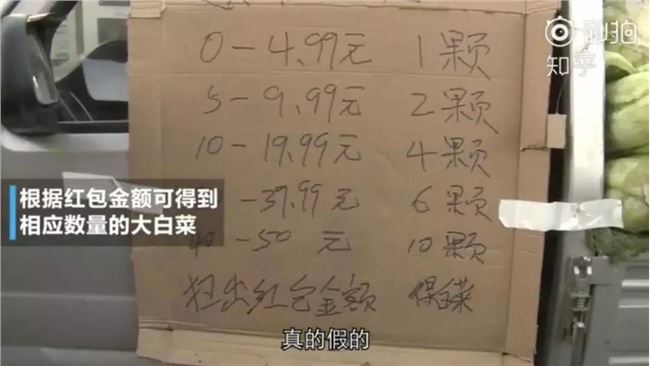 秒拍
知乎
0-4.99元 1颗
5-9.99元 2颗
10-19.99元 4颗
-39.99元 6颗
40-50 元 10颗
扫出红包金额 白菜
根据红包金额可得到
相应数量的大白菜
真的假的